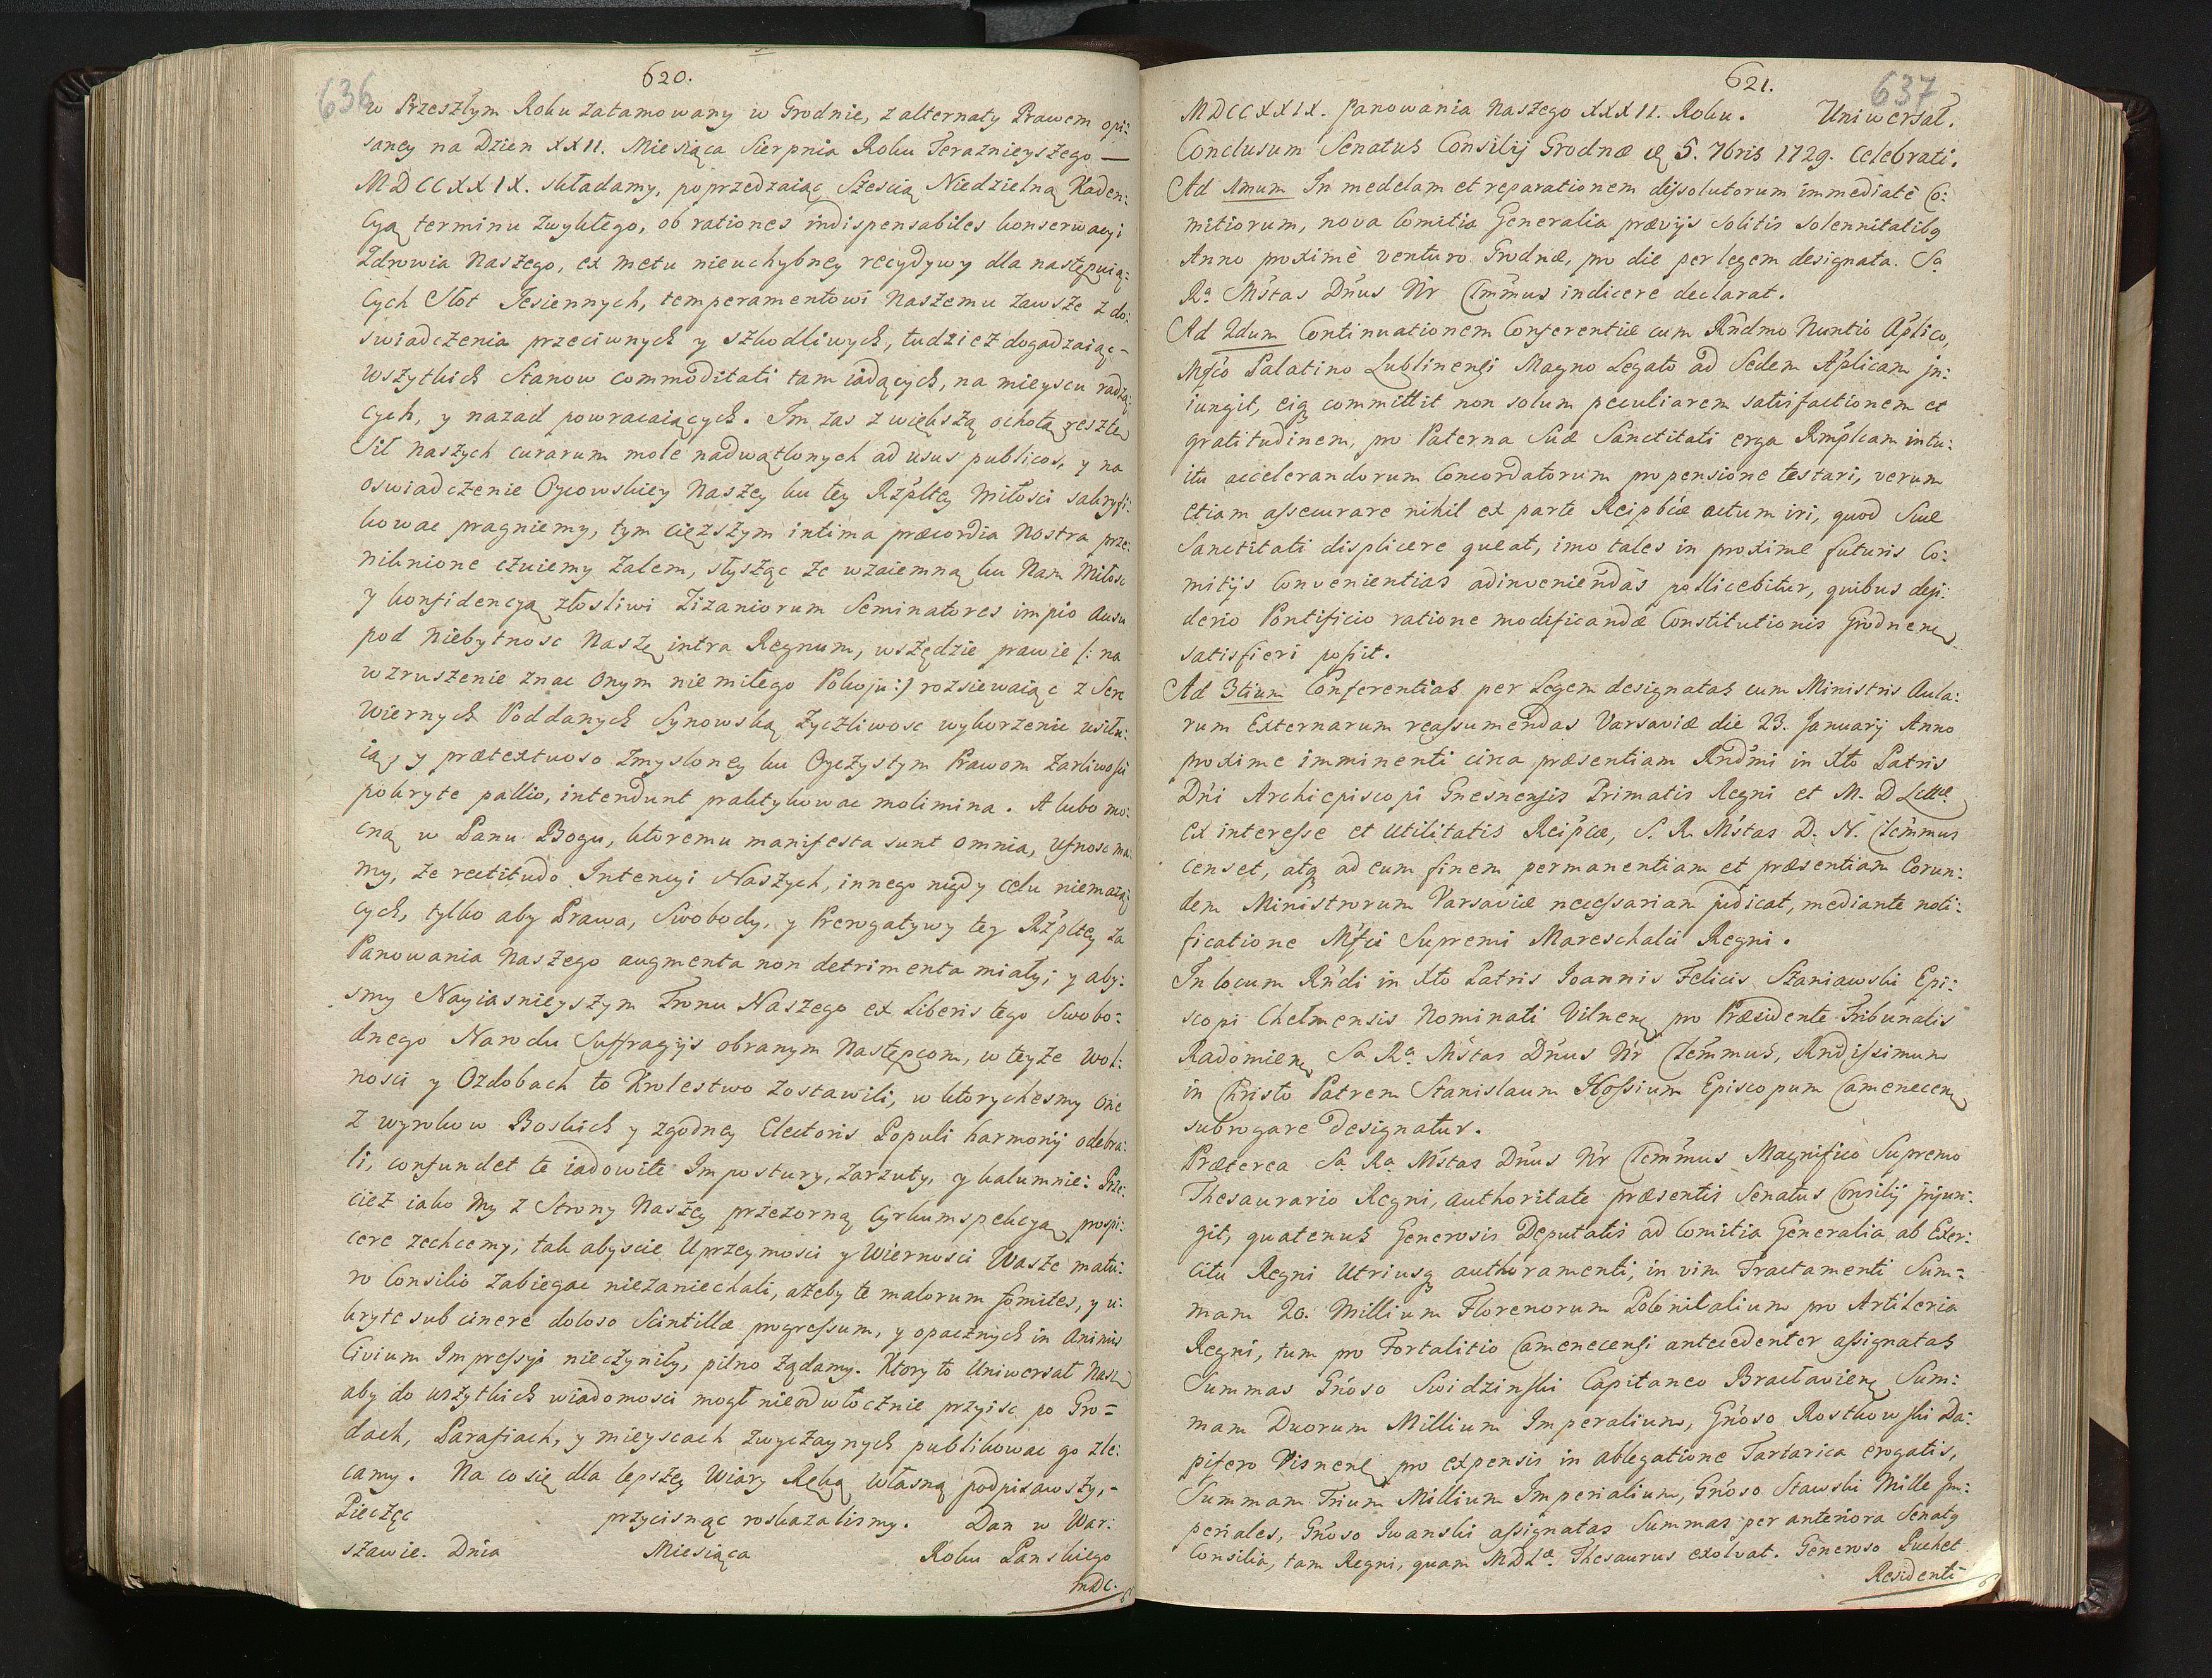 636
620.
w Przeszłym Roku zatamowany w Grodnie, z alternaty Prawem opi:
saney na Dzien XXII. Miesiąca Sierpnia Roku Teraznieyszego —
MDCCXXIX. składamy, poprzedzaiąc Szescią Niedzielną Kaden:
cyą terminu zwykłego, ob rationes indispensabiles konserwacyi
Zdrowia Naszego, ex metu nieuchybney recydywy dla następuią:
cych Słot Jesiennych, temperamentowi Naszemu zawsze z do:
swiadczenia przeciwnych y szkodliwych, tudziez dogadzaiąc -
wszytkich Stanow commoditati tam iadących, na mieyscu radzą
cych, y nazad powracaiących. Im zas z większą ochotą resztę
Sił Naszych curarum mole nadwątlonych ad usus publicos, y na
oswiadczenie Oycowskiey Naszey ku tey Rzpltey Miłosci sakryfi:
kowac pragniemy, tym cięzszym intima præcordia Nostra prze:
niknione czuiemy zalem, słysząc ze wzaiemną ku Nam Miłosc
y konfidencyą złosliwi Zizaniorum Seminatores impio Ausu
pod Niebytnosc Naszę intra Regnum, wszędzie prawie /: na
wzruszenie znac Onym nie miłego Pokoju :/ rozsiewaiąc z Serc
Wiernych Poddanych Synowską Zyczliwosc wykorzenic usiłu:
ią, y prætextuoso Zmysloney ku Oyczystym Prawom Zarliwosci
pokryte pallio, intendunt praktykowac molimina. A lubo mo:
cną w Panu Bogu, ktoremu manifesta sunt omnia, Ufnosc ma:
my, ze rectitudo Intencyi Naszych, innego nigdy celu niemaią
cych, tylko aby Prawa, Swobody, y Prerogatywy tey Rzpltey za
Panowania Naszego augmenta non detrimenta miały; y aby:
smy Nayiasnieyszym Tronu Naszego ex Liberis tego Swobo:
dnego Narodu Suffragijs obranym Następcom, w teyze Wol:
nosci y Ozdobach to Krolestwo zostawili, w ktorychesmy One
z wyrokow Boskich y zgodney Electoris Populi harmonij odebra:
li, confundet te iadowite Impostury, zarzuty, y kalumnie: Prze:
ciez iako My z Strony Naszey przezorną Cyrkumspekcyą prospi:
cere zechcemy, tak abyscie Uprzeymosci y Wiernosci Wasze matu:
ro Consilio zabiegac niezaniechali, azeby te malorum fomites, y u:
kryte sub cinere doloso Scintillæ progressum, y opacznych in Animis
Civium Impressyi nieczyniły, pilno ządamy. Ktory to Uniwersał Nasz
aby do wszytkich wiadomosci mogł nieodwłocznie przyisc po Gro=
dach, Parafiach, y mieyscach zwyczaynych publikowac go zle:
camy. Na co się dla lepszey Wiary Ręką własną podpisawszy, -
Pieczęc przycisnąc roskazalismy. Dan w War:
szawie. Dnia Miesiąca Roku Panskiego
MDC.
621.
637
MDCCXXIX. Panowania Naszego XXXII. Roku. Uniwersał.
Conclusum Senatus Consilij Grodnæ 5. 7bris 1729. Celebrati.
Ad 1mum In medelam et reparationem dissolutorum immediatè Co:
mitiorum, nova Comitia Generalia prævijs solitis solennitatibq
Anno proximè venturo Grodnæ, pro die per legem designata. Sa
Ra Mstas Dnus Nr Clmmus indicere declarat.
Ad 2dum Continuationem Conferentiæ cum Rndmo Nuntio Aplico,
Mfco Palatino Lublinensi Magno Legato ad Sedem Aplicam in:
iungit, eiq committit non solum peculiarem satisfactionem et
gratitudinem, pro Paterna Suæ Sanctitati erga Rmplcam intu:
itu accelerandorum Concordatorum propensione testari, verum
etiam assecurare nihil ex parte Reipbcæ actum iri, quod Suæ
Sanctitati displicere queat, imo tales in proximè futuris Co:
mitijs Convenientias adinveniendas pollicebitur, quibus desi:
derio Pontificio ratione modificandæ Constitutionis Grodnens
satisfieri possit.
Ad 3tium Conferentias per Legem designatas cum Ministris Aula:
rum Externarum reassumendas Varsaviæ die 23. Januarij Anno
proxime imminenti circa præsentiam Rndmi in Xto Patris
Dni Archiepiscopi Gnesnensis Primatis Regni et M. D Littuæ
ex interesse et utilitatis Reipcæ, S. R. Mstas D. N. Clemmus
censet, atq ad eum finem permanentiam et præsentiam Eorun:
dem Ministrorum Varsaviæ necessariam judicat, mediante noti:
ficatione Mfci Supremi Mareschalci Regni.
In locum Rndi in Xto Patris Joannis Felicis Szaniawski Epi:
scopi Chełmensis Nominati Vilnens pro Præsidente Tribunalis
Radomiens Sa Ra Mstas Dnus Nr Clemmus, Rndissimum
in Christo Patrem Stanislaum Hossium Episcopum Camenecens
subrogare designatur.
Præterea Sa Ra Mstas Dnus Nr Clemmus Magnifico Supremo
Thesaurario Regni, authoritate præsentis Senatus Consilij injun:
git, quatenus Generosis Deputatis ad Comitia Generalia ab Exer:
citu Regni Utriusq authoramenti, in vim Tractamenti Sum=
mam 20. Millium Florenorum Polonicalium pro Artileria
Regni, tum pro Fortalitio Camenecensi antecedenter assignatas
Summas Gnoso Swidzinski Capitaneo Bracłaviens Sum:
mam Duorum Millium Imperalium, Gnoso Rostkowski Da:
pifero Visnens pro expensis in ablegatione Tartarica erogatis,
Summam Trium Millium Imperialium, Gnoso Stawski Mille Im:
periales, Gnoso Iwanski assignatas Summas per anteriora Senatq
Consilia, tam Regni, quam MDLæ Thesaurus exolvat. Generoso Puchet
Residenti